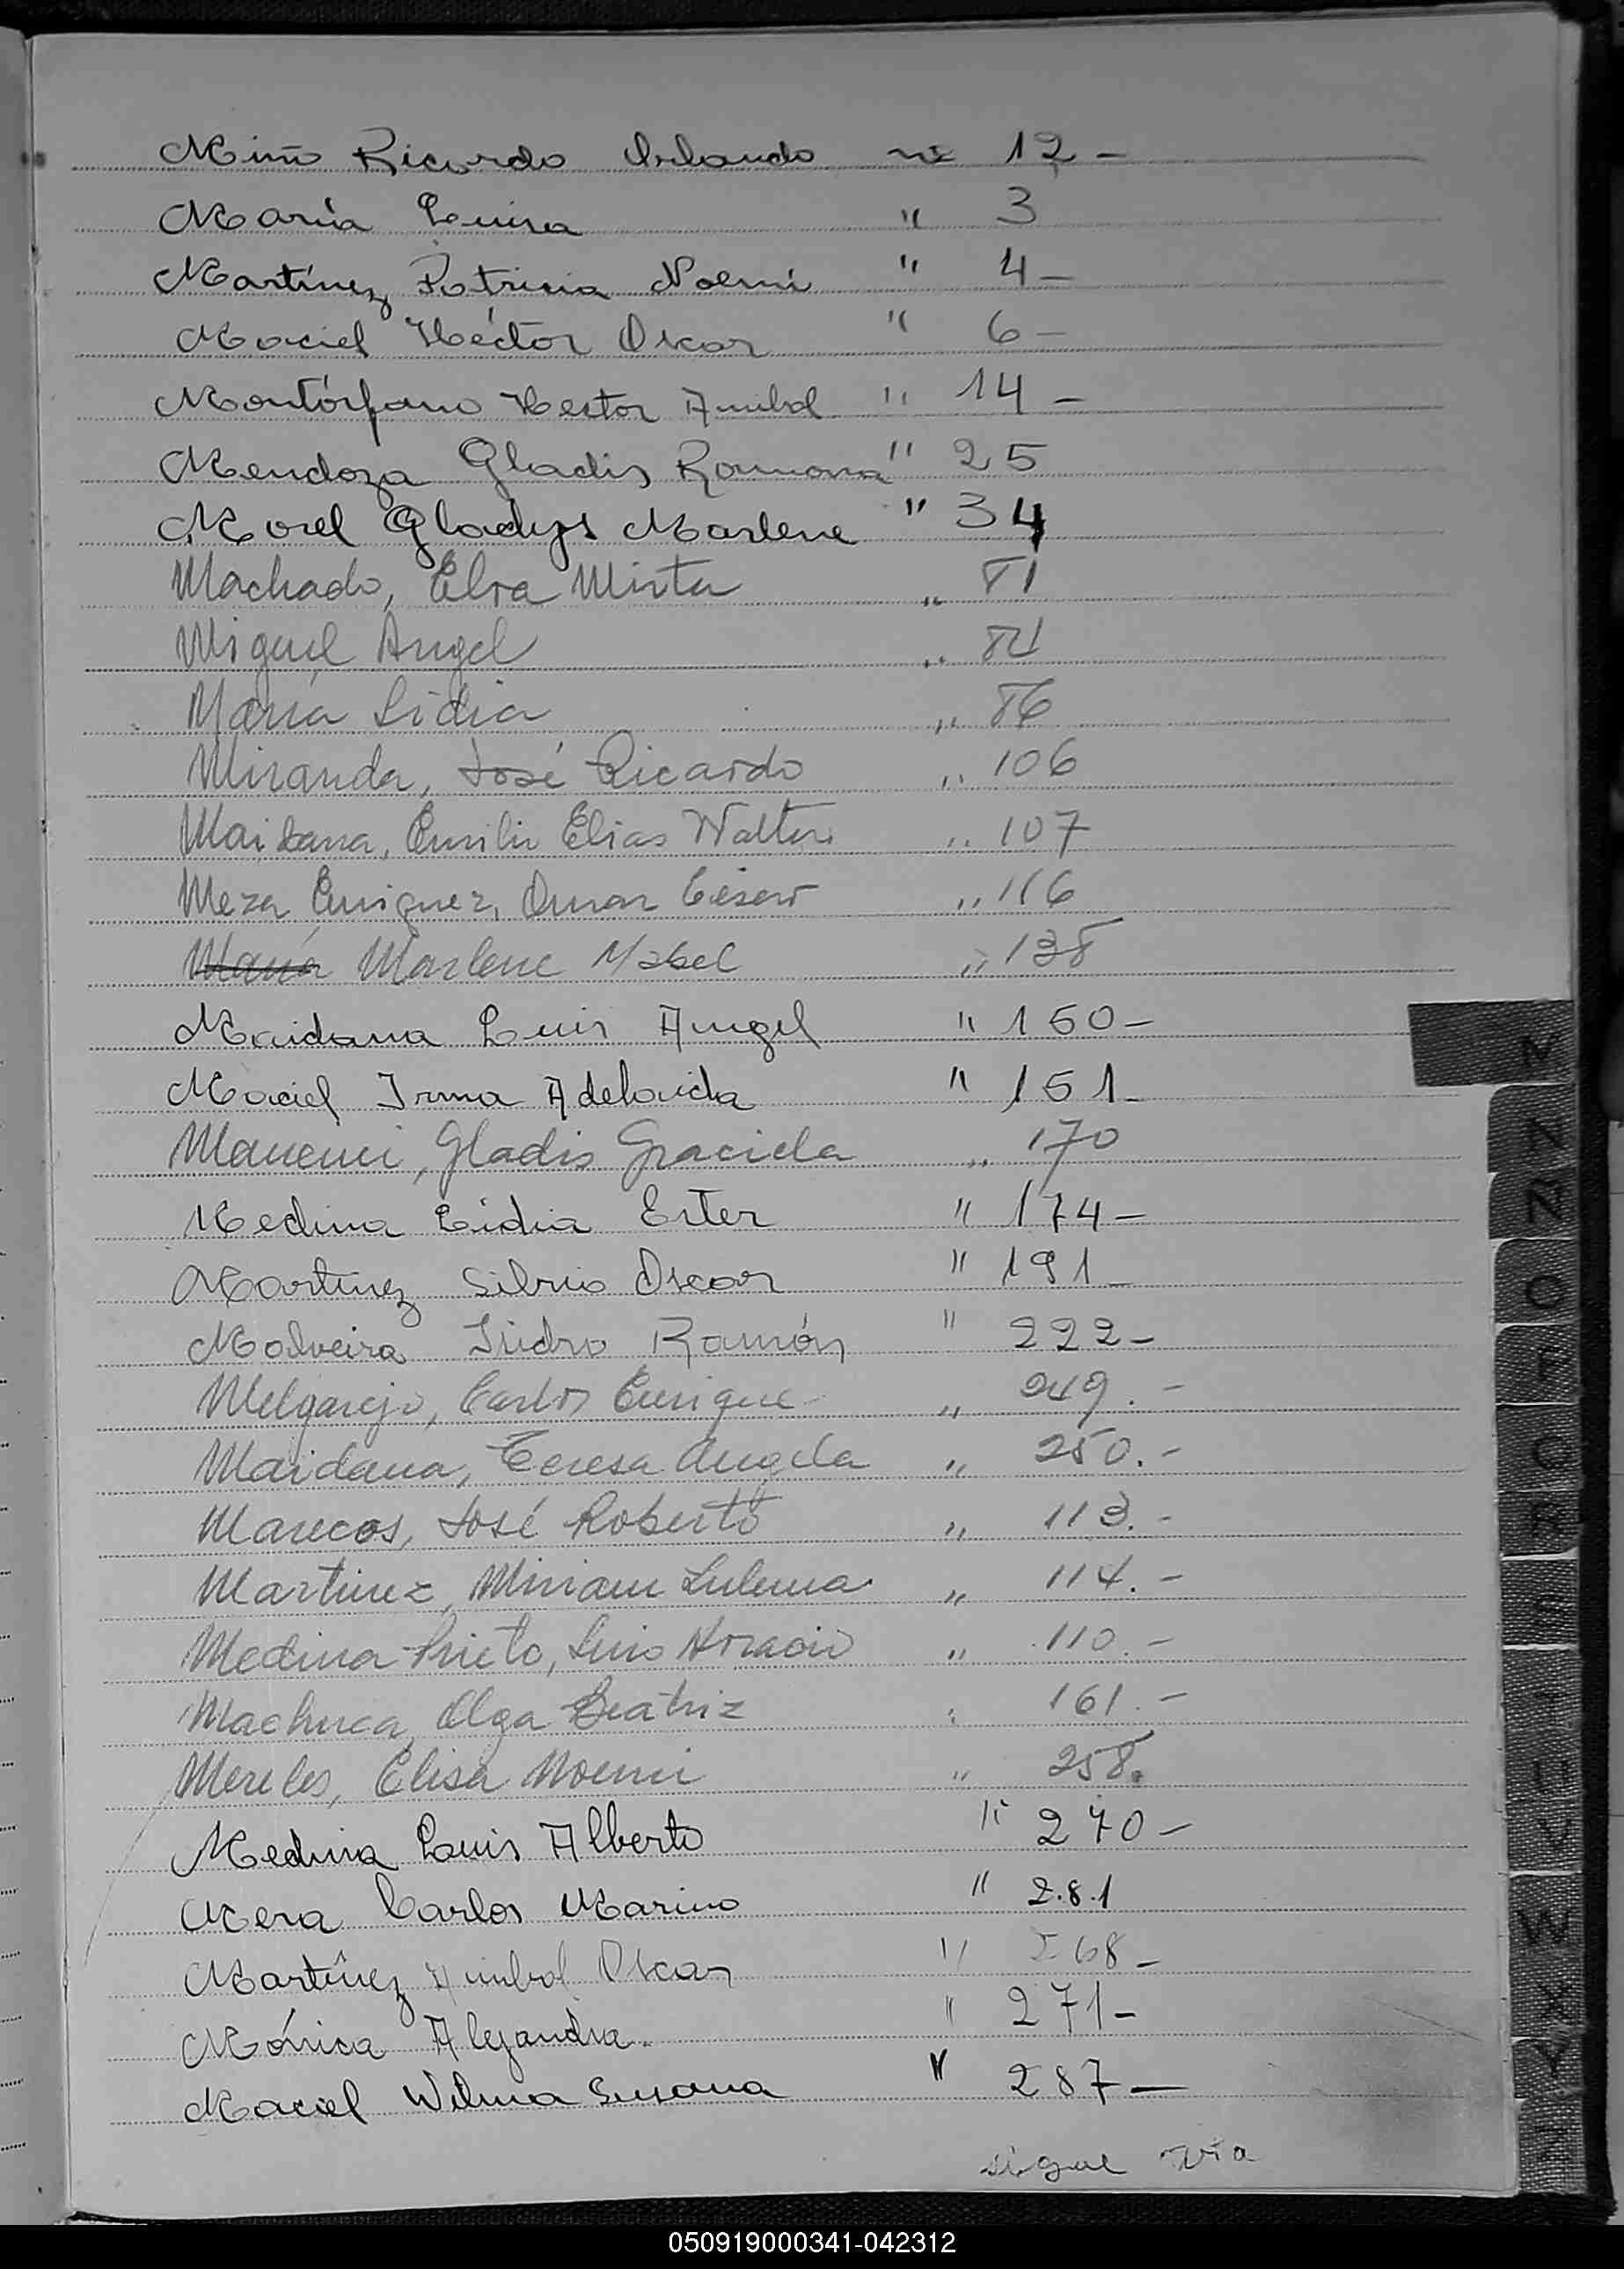 Miño Ricardo Orlando nº 12 -
María Luisa " 3
Martínez Patricia Noemi " 4 -
Maciel Héctor Oscar " 6 -
Montórfano Hector Anibal " 14 -
Mendoza Gladis Ramona " 25
Morel Gladys Marlene " 34
Machado, Elva Mirta " 81
Miguel Angel " 84
María Lidia " 86
Miranda, José Ricardo " 106
Maidana, Emilio Elias Walter " 107
Meza Enriquez, Omar César " 116
María Marlene Mabel " 138
Maidana Luis Angel " 150 -
Maciel Irma Adelaida " 151 -
Gladis Graciela " 170
Medina Lidia Ester " 174 -
Martínez Silvio Oscar " 191 -
Malveira Isidro Ramón " 222 -
Melgarejo, Carlos Enrique " 249. -
Maidana, Teresa Angela " 250. -
Marecos, José Roberto " 113. -
Martinez, Miriam Zulema " 114. -
Medina Prieto, Luis Horacio " 110. -
Machuca, Olga Beatriz " 161. -
Mereles, Elisa Noemi " 258.
Medina Luis Alberto " 270 -
Mera Carlos Marino " 2.8.1
Martínez Anibal Oscar " 268 -
Mónica Alejandra. " 271 -
Maciel Wilma Susana " 287 -
sigue
M
N
Ñ
O
P
Q
R
S
T
U
V
W
X
Y
Z
050919000341-042312